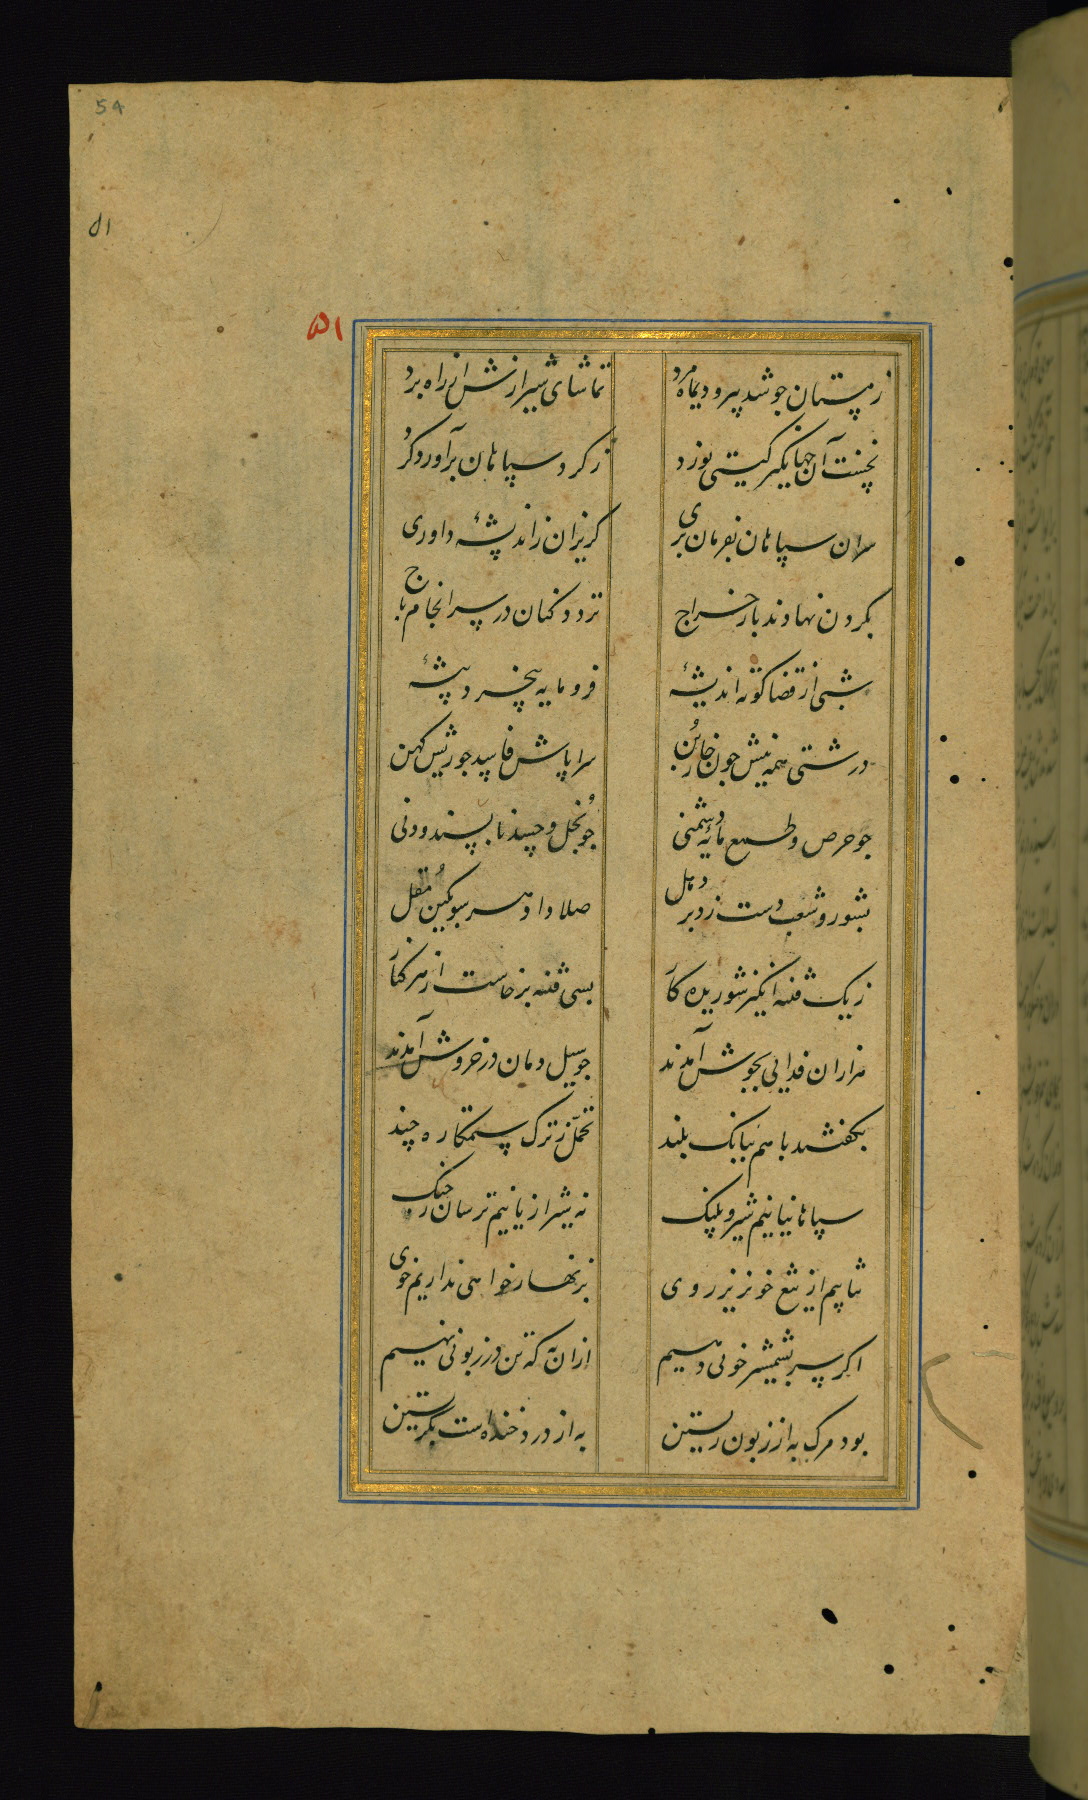 54
۵۱
۵۱
زمستان جو شد پیر و دیماه مرد تماشای شیرازش از راه برد
نخست آن جهانکیر کیتی نورد ز کرد سپاهان برآورد کرد
سران سپاهان بفرمان بری کریزان ز اندیشهٔ داوری
بکردن نهادند بار خراج تردد کنان در سرانجام باج
شبی از قضا کوته اندیشهٔ فرومایه بیخرد پیشهٔ
درشتی همه نیش جون خاربن سراپاش فاسد جو ریش کهن
جو حرص و طمع مایهٔ دشمنی جو بخل و حسد ناپسند و دنی
بشور و شغب دست زد بر دهل صلا داد
ز یک فتنه انکیز شوریده کار بسی فتنه برخاست از هر کنار
هزاران فدایی بجوش آمدند جو سیل دمان در خروش آمدند
بکفتند با هم ببانک بلند تحمل ز ترک ستمکاره چند
سپاهانیانیم شیر و پلنک نه شیرازیانیم ترسان ز جنک
نتابیم از تیغ خونریز روی بزنهار خواهی نداریم خوی
اکر سر بشمشیر خونی دهیم ازان به که تن در زبونی نهیم
بود مرک به از زبون زیستن به از درد خنداست بکریستن